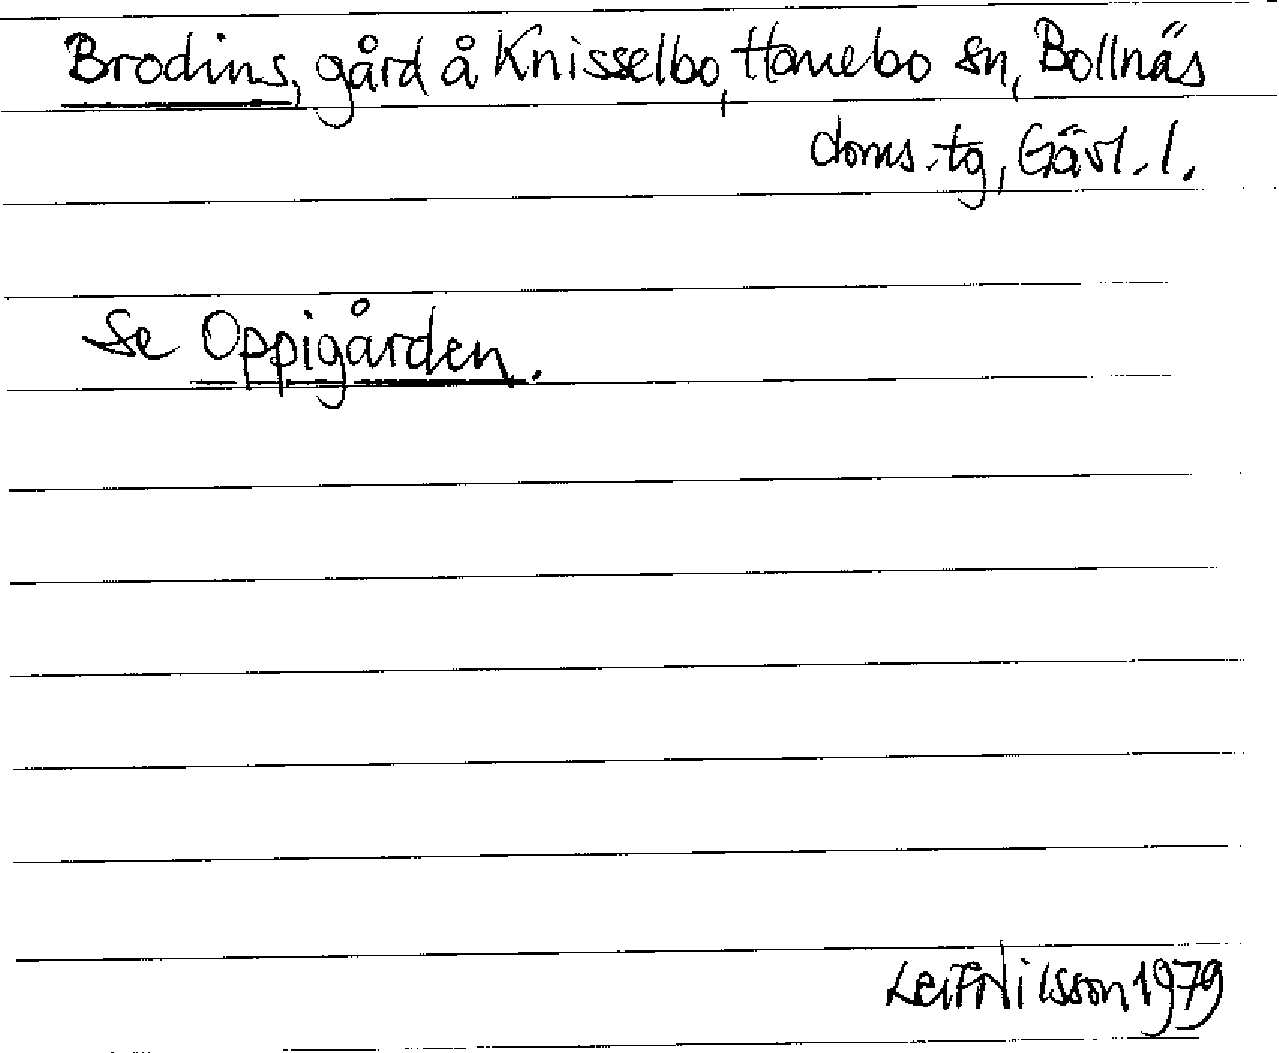 Brodins, gård å Knisselbo, Hanebo sn, Bollnäs
doms.tg, Gävl. l.
Se Oppigården.
Leif Nilsson 1979